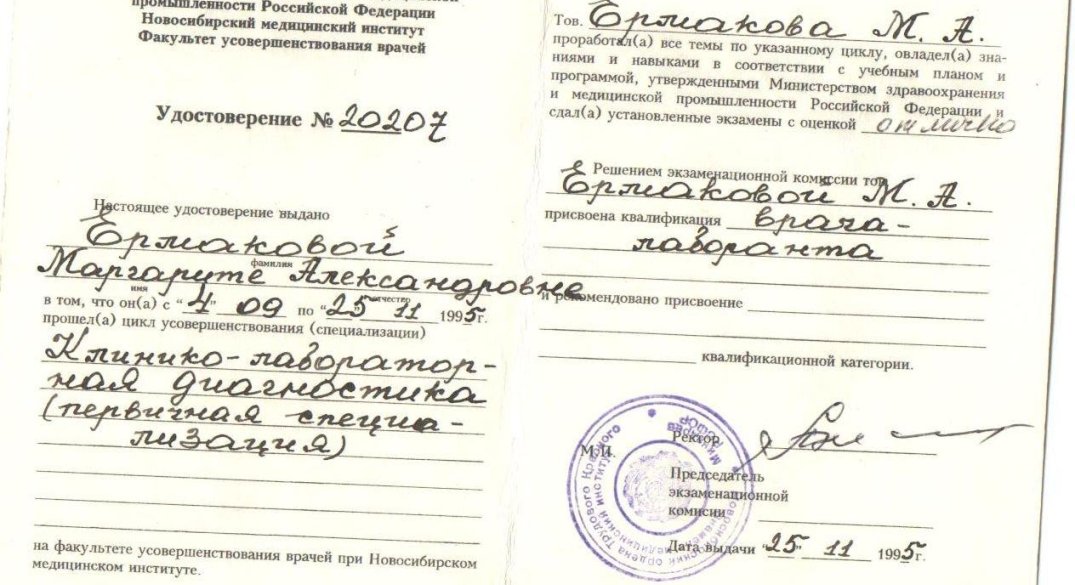 промышленности Российской Федерации
Новосибирский медицинский институт
Факультет усовершенствования врачей
Удостоверение № 20207
Настоящее удостоверение выдано
Ермаковой
фамилия
Маргарите Александровне
имя отчество
в том, что он(а) с "4" 09 по "25" 11 1995г.
прошел(а) цикл усовершенствования (специализации)
Клинико-лаборатор-
ная диагностика
(первичная специа-
лизация)
на факультете усовершенствования врачей при Новосибирском
медицинском институте.
Тов. Ермакова М. А.
проработал(а) все темы по указанному циклу, овладел(а) зна-
ниями и навыками в соответствии с учебным планом и
программой, утвержденными Министерством здравоохранения
и медицинской промышленности Российской Федерации и
сдал(а) установленные экзамены с оценкой отлично
Решением экзаменационной комиссии тов.
Ермаковой М. А.
присвоена квалификация врача-
лаборанта
и рекомендовано присвоение
квалификационной категории.
М.П.
Ректор
Председатель
экзаменационной
комиссии
Дата выдачи "25" 11 1995г.